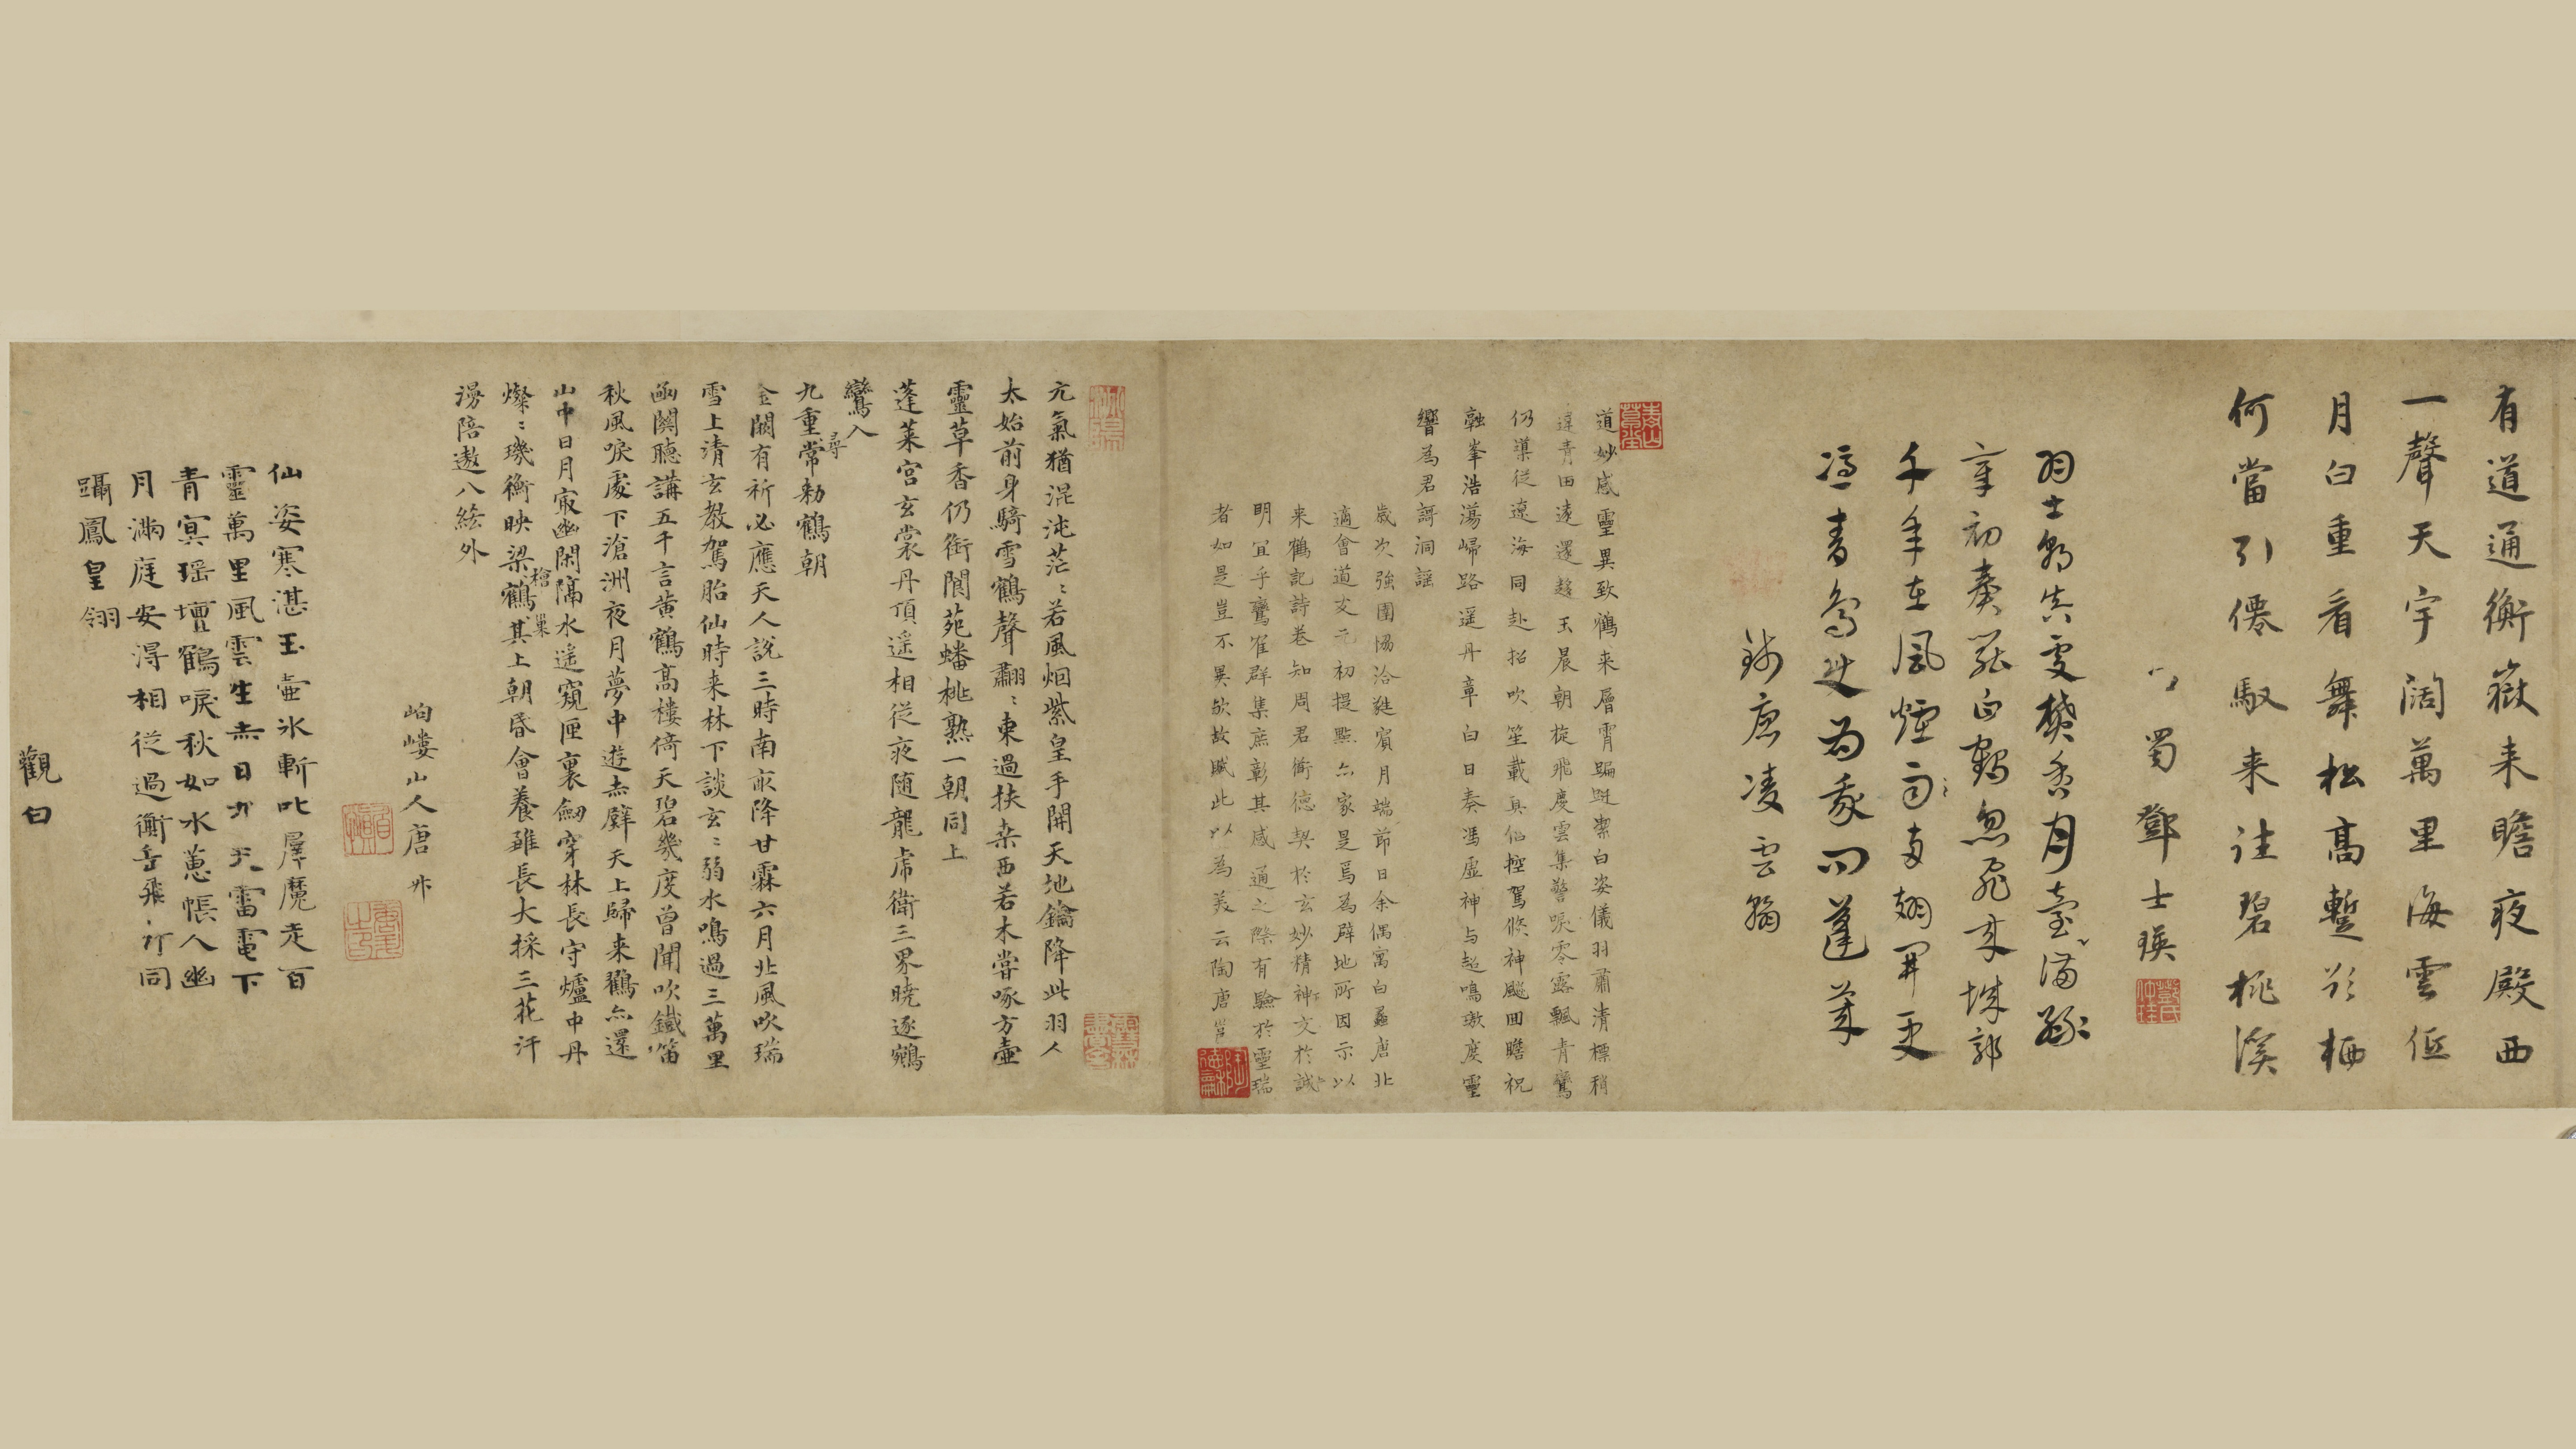 有道通衡嶽来瞻夜殿西
一聲天宇闊萬里海雲低
月白重看舞松高蹔欲栖
何當引僊馭来往碧桃溪
蜀鄧士瑛
羽士朝真處焚香月臺滿緑
章初奏罷白鶴忽飛来城郭
千年在風煙兩翅開更
憑青鳥使為我問蓬萊
錢唐凌雲翰
道妙感靈異致鶴来層霄蹁躚潔白姿儀羽肅清標稍
違青田遠還趍玉晨朝旋飛慶雲集警唳零露飄青鸞
仍導從遼海同赴招吹笙載真仙控駕倏神飈回瞻祝
融峯浩蕩歸路遥丹章白日奏馮虚神与超鳴璈度靈
響為君謌洞謡
歲次強圉協洽蕤賓月端節日余偶寓白龜唐北
適會道友元初提點亦家是焉為辟地所因示以
来鶴記詩卷知周君衛德契於玄妙精神交於誠
明冝乎鸞隺群集庶彰其感通之際有驗於靈瑞
者如是豈不異欤故賦此以為美云陶唐邕
亢氣猶混沌茫〻若風烟紫皇手開天地鑰降此羽人
太始前身騎雪鶴聲翽〻東過扶桒西若木嘗啄方壷
靈草香仍銜閬苑蟠桃熟一朝同上
蓬萊宮玄裳丹頂遥相從夜随龍虎衛三界曉逐鵷
鸞入
九重常尋勅鶴朝
金闕有祈必應天人說三時南畝降甘霖六月北風吹瑞
雪上清玄教駕胎仙時来林下談玄〻弱水鳴過三萬里
函關聽講五千言黄鶴髙樓倚天碧幾度曽聞吹鐡笛
秋風唳處下滄洲夜月夢中遊赤壁天上歸来鸛亦還
山中日月㝡幽閑隔水遥窺匣裏劔穿林長守爐中丹
燦〻璣衡映梁檜鶴巢其上朝昏會養雖長大採三花汗
漫陪遨八紘外
岣嶁山人唐升
仙姿寒湛玉壷氷斬叱羣魔走百
靈萬里風雲生赤日九天雷電下
青冥瑶壇鶴唳秋如水蕙帳人幽
月滿庭安淂相從過衡岳飛〻行同
躡鳳皇翎
觀白